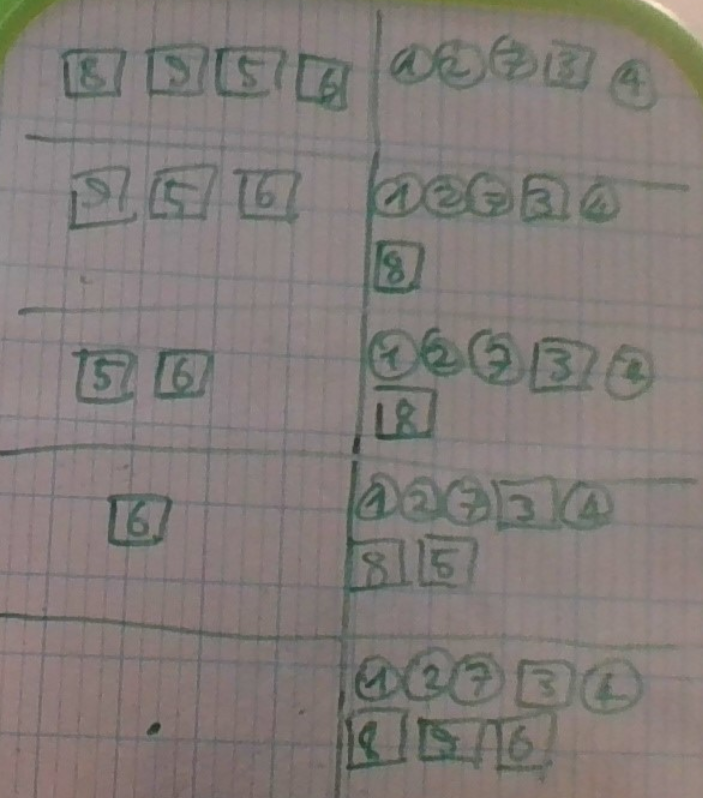 8 9 5 6 1 2 7 3 4
9 5 6 1 2 7 3 4
8
5 6 1 2 7 3 4
8
6 1 2 7 3 4
8 5
1 2 7 3 4
8 5 6